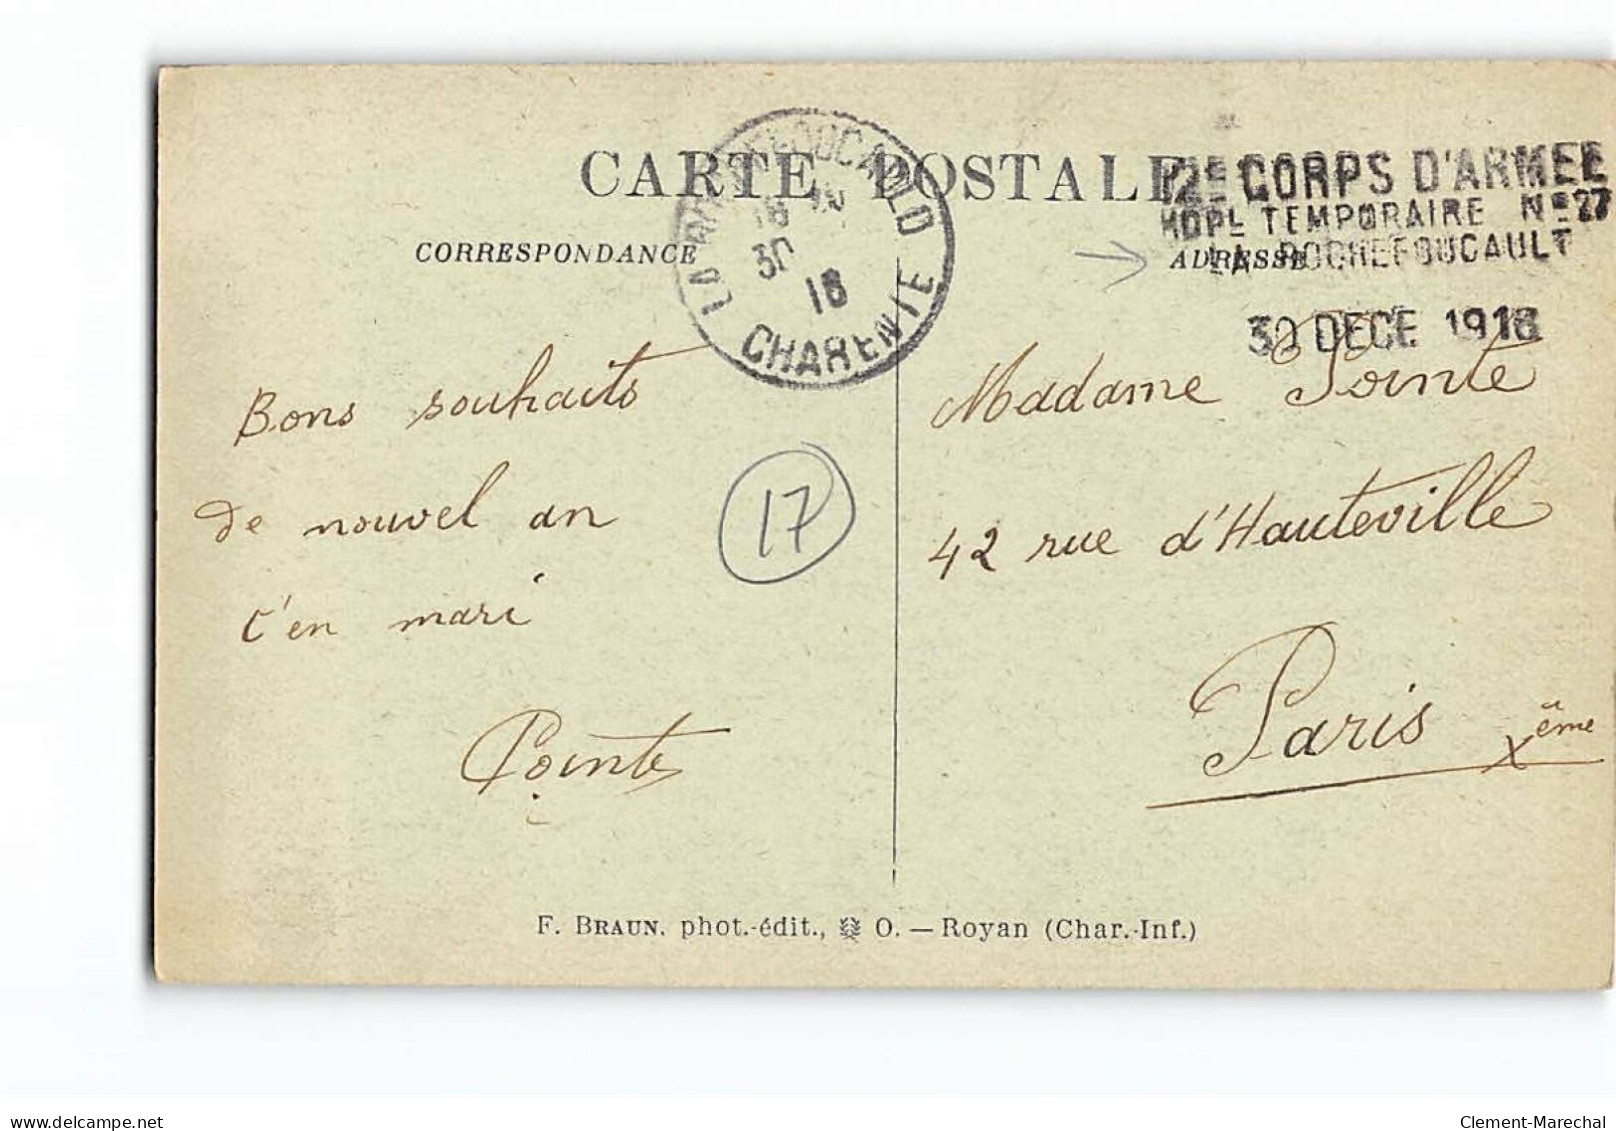 CARTE POSTALE
LA ROCHEFOUCAULD
30
16
CHARENTE
12e CORPS D'ARMEE
HOPL TEMPORAIRE No 27
LA ROCHEFOUCAULT
30 DECE 1916
CORRESPONDANCE
ADRESSE
Bons souhaits
de nouvel an
c'en mari
Pointe
17
Madame Pointe
42 rue d'Hauteville
Paris Xème
F. BRAUN. phot.-édit., O. — Royan (Char.-Inf.)
delcampe.net
Clement-Marechal